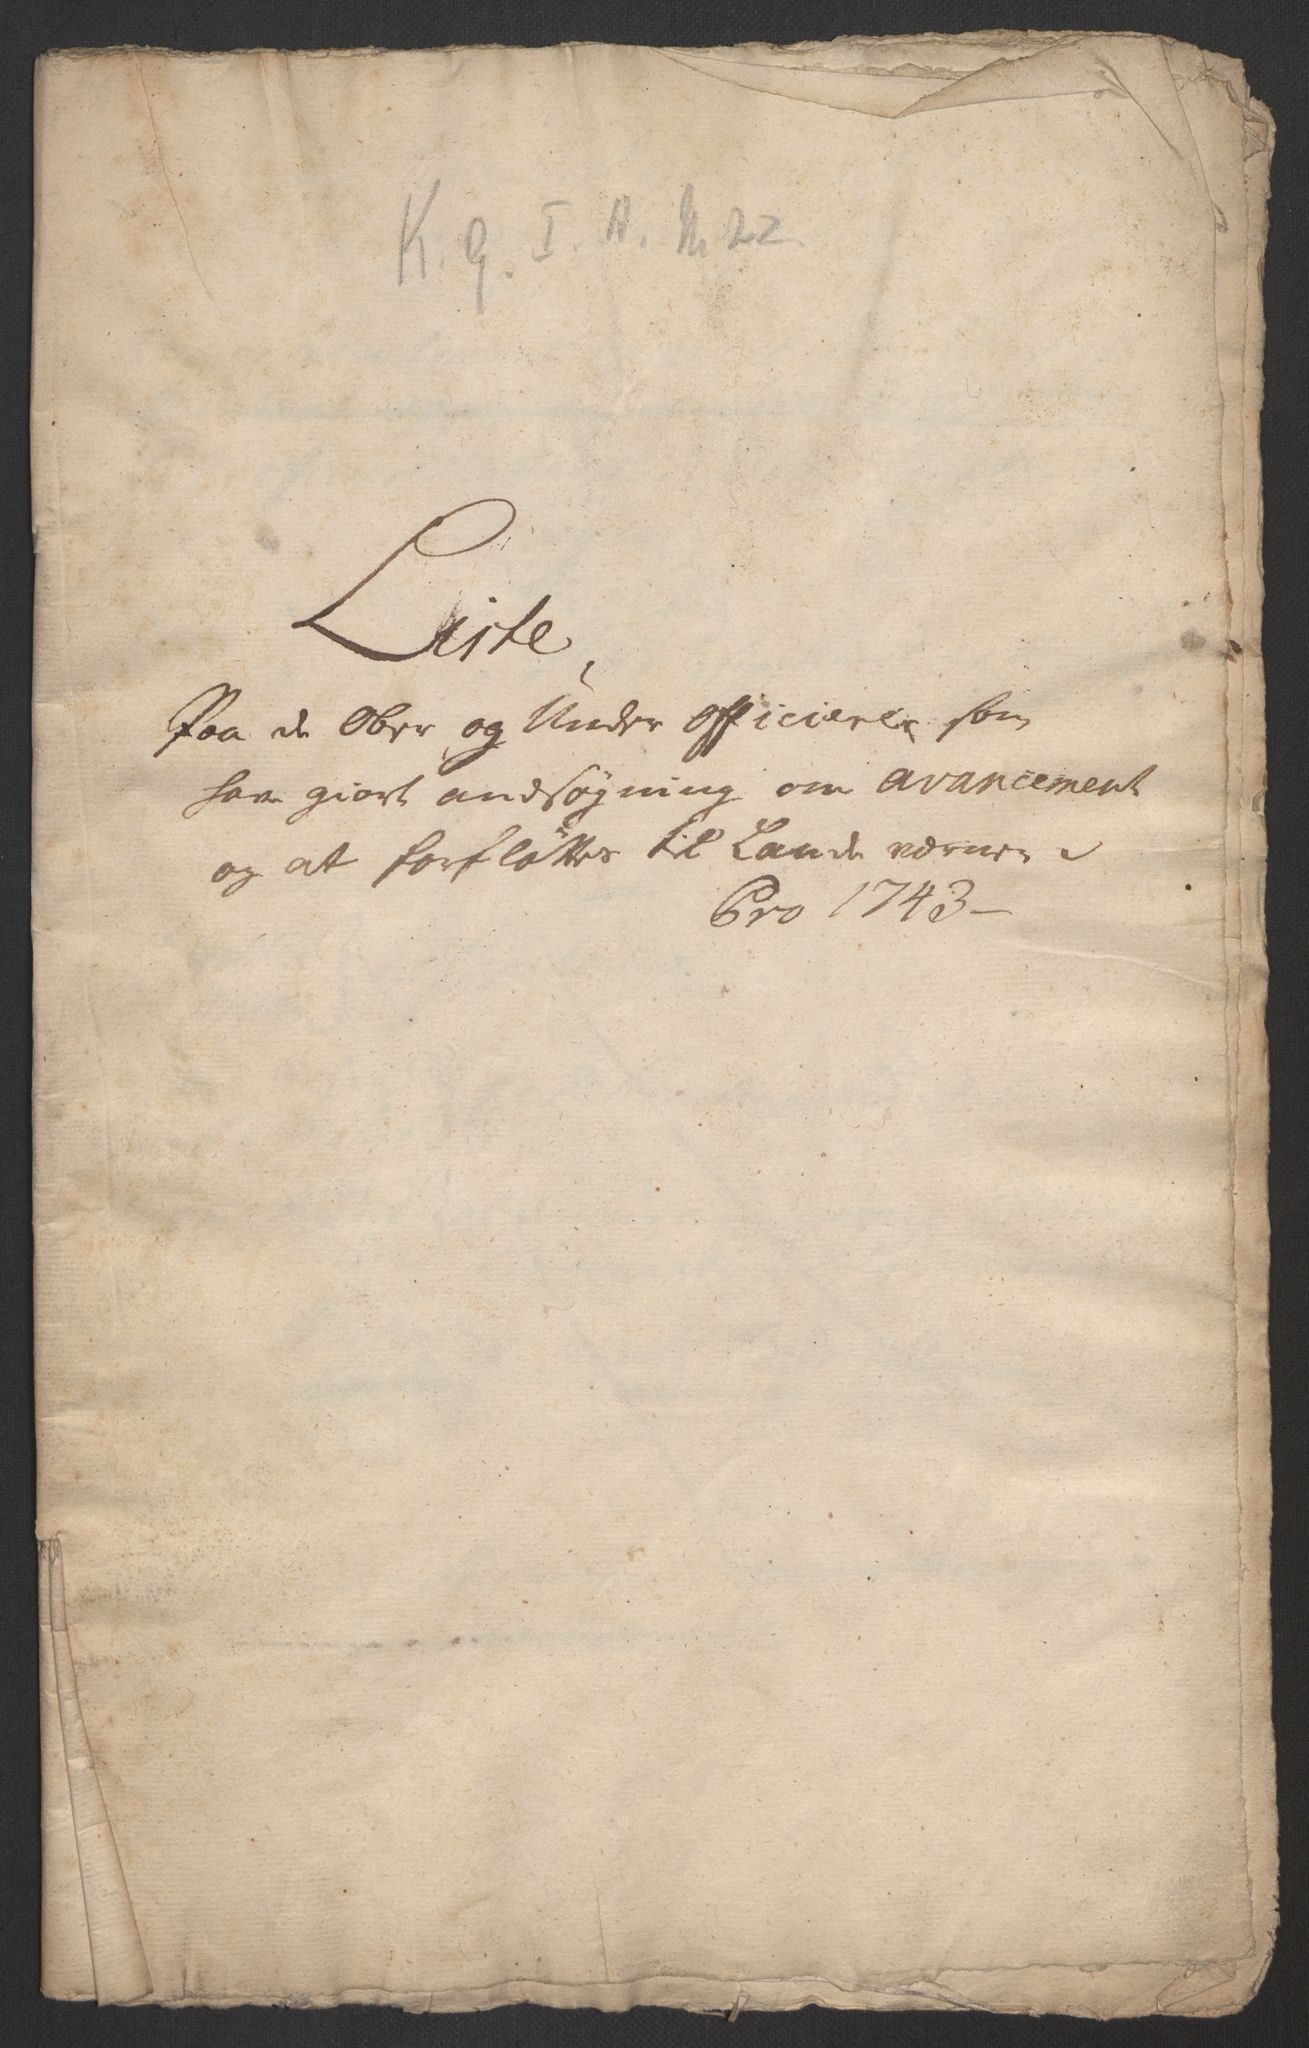 K. G. I. A. N. 22
Liste,
Paa de Ober og Under officierer som
have giort andsøgning om avancement
og at forfløttes til Lande værnen
Pro 1743-